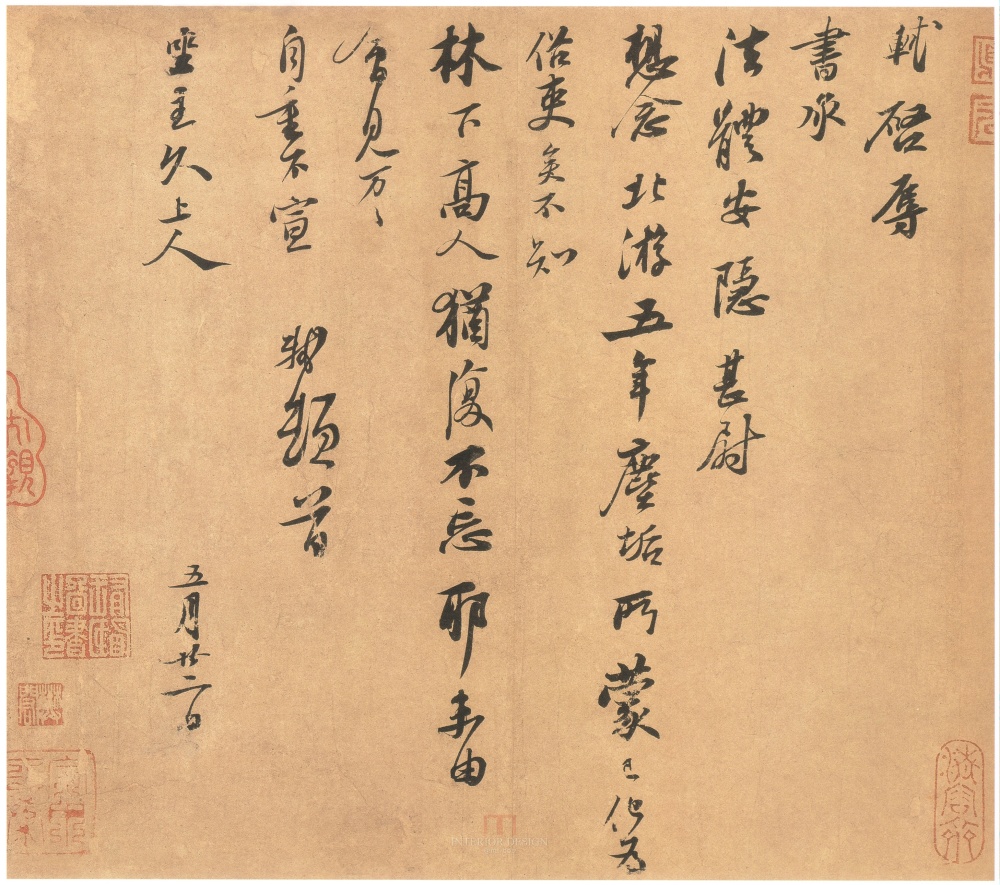 軾啓辱
書承
法體安隱甚尉
想念北游五年塵垢所蒙已化爲
俗吏矣不知
林下高人猶復不忘耶未由
會見万〻
自重不宣 軾頓首
坐主久上人
五月廿二日
INTERIOR DESIGN